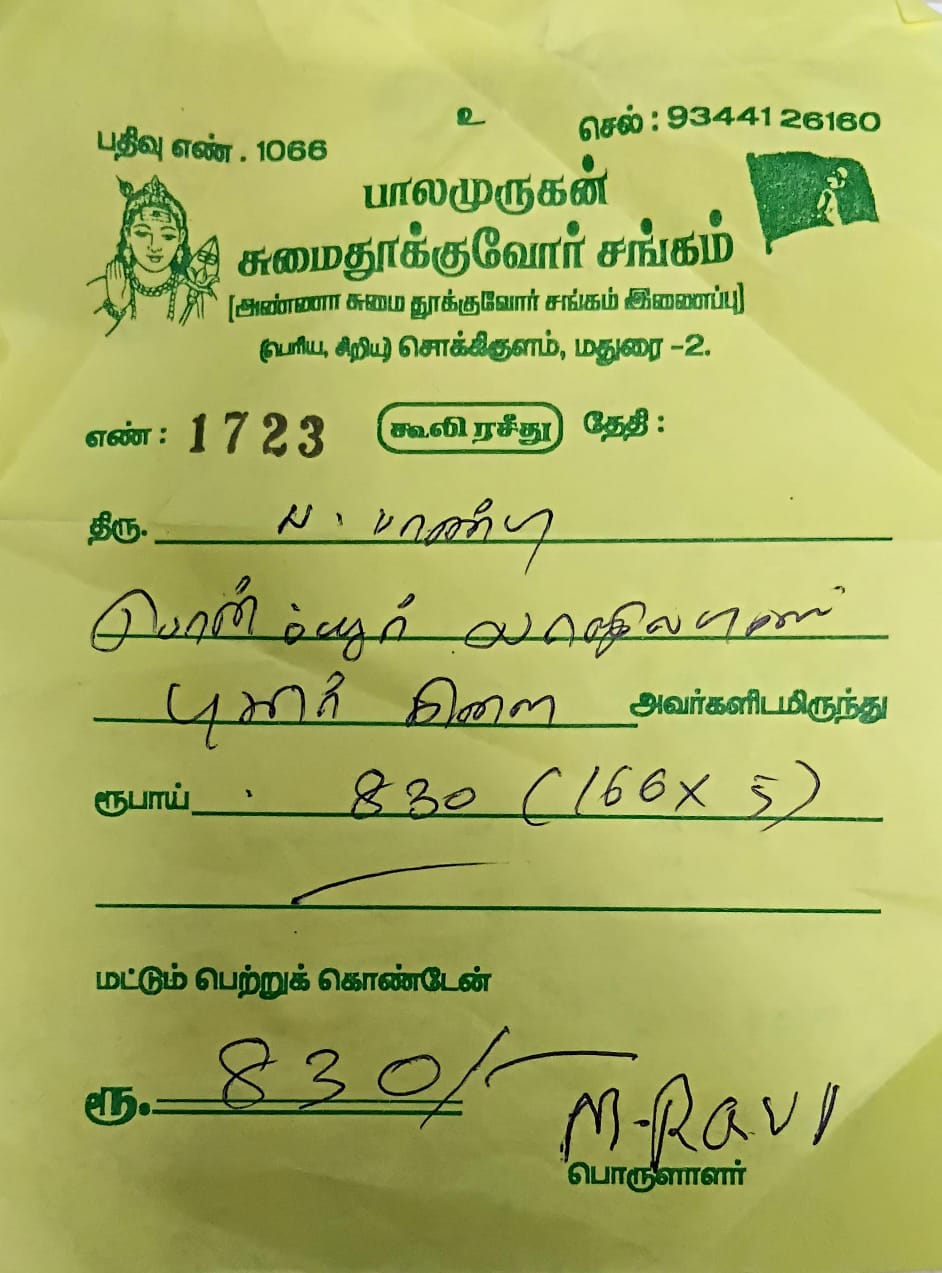 உ
பதிவு எண் . 1066 செல் : 93441 26160
பாலமுருகன்
சுமைதூக்குவோர் சங்கம்
[அண்ணா சுமை தூக்குவோர் சங்கம் இணைப்பு]
(பெரிய, சிறிய) சொக்கிகுளம், மதுரை -2.
எண் : 1723 கூலி ரசீது தேதி :
திரு. பாண்டி
பொன்
கிளை அவர்களிடமிருந்து
ரூபாய் 830 (166 x 5)
மட்டும் பெற்றுக் கொண்டேன்
ரூ. 830/-
M. RAVI
பொருளாளர்